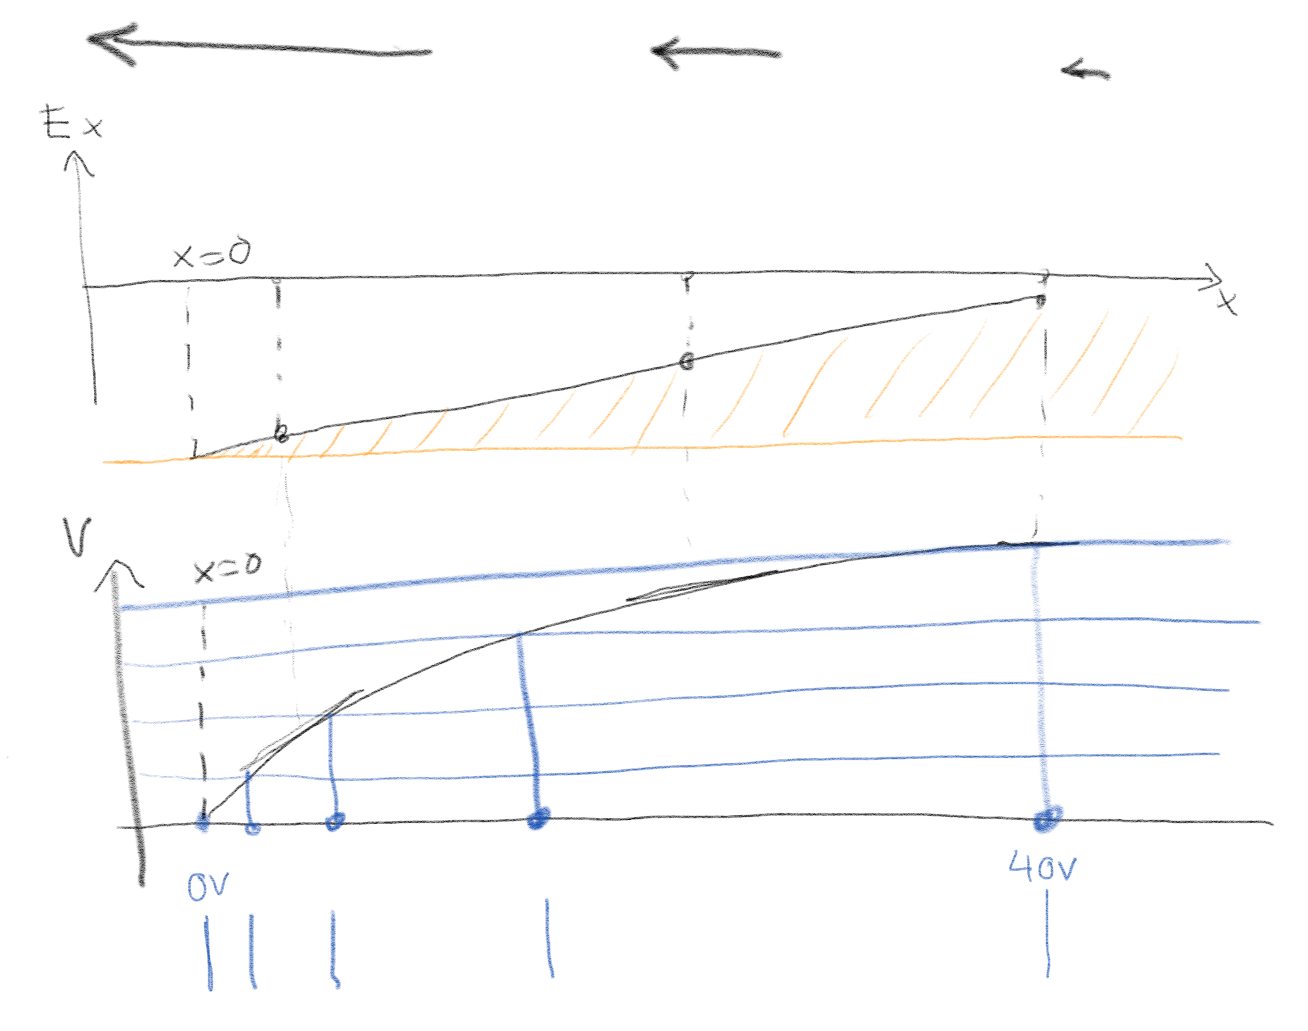 Ex
x=0
x
V
x=0
0V
40V